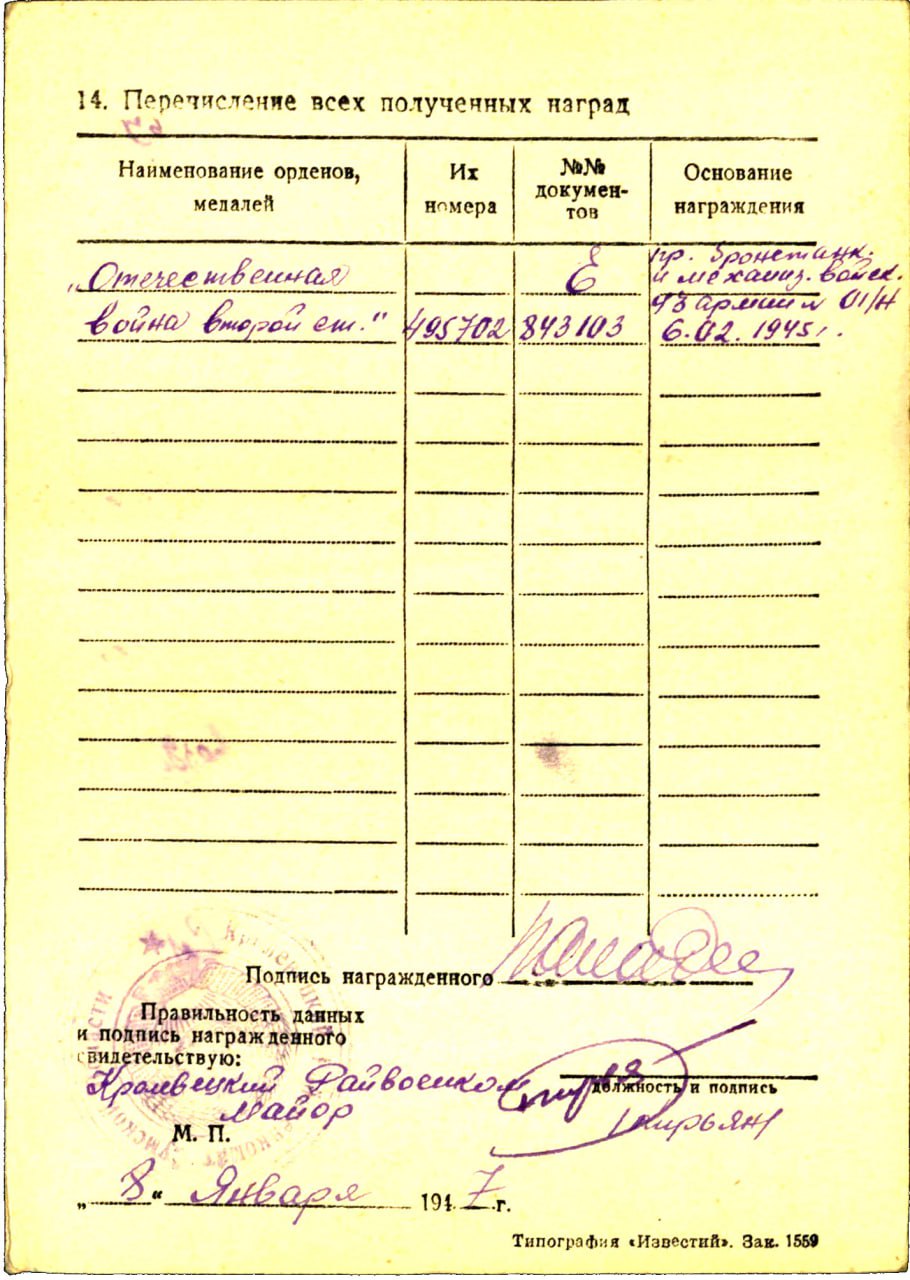 14. Перечисление всех полученных наград
Наименование орденов, медалей
Их номера
№№ документов
Основание награждения
„Отечественная
война второй ст."
495702
Е
843103
пр. Бронетанк.
и механиз. войск.
43 армии № 01/Н
6.02.1945г.
Подпись награжденного
Правильность данных
и подпись награжденного
свидетельствую:
Кролевецкий Райвоенком
майор
должность и подпись
М. П.
„8“ Января 1947 г.
Типография «Известий». Зак. 1559